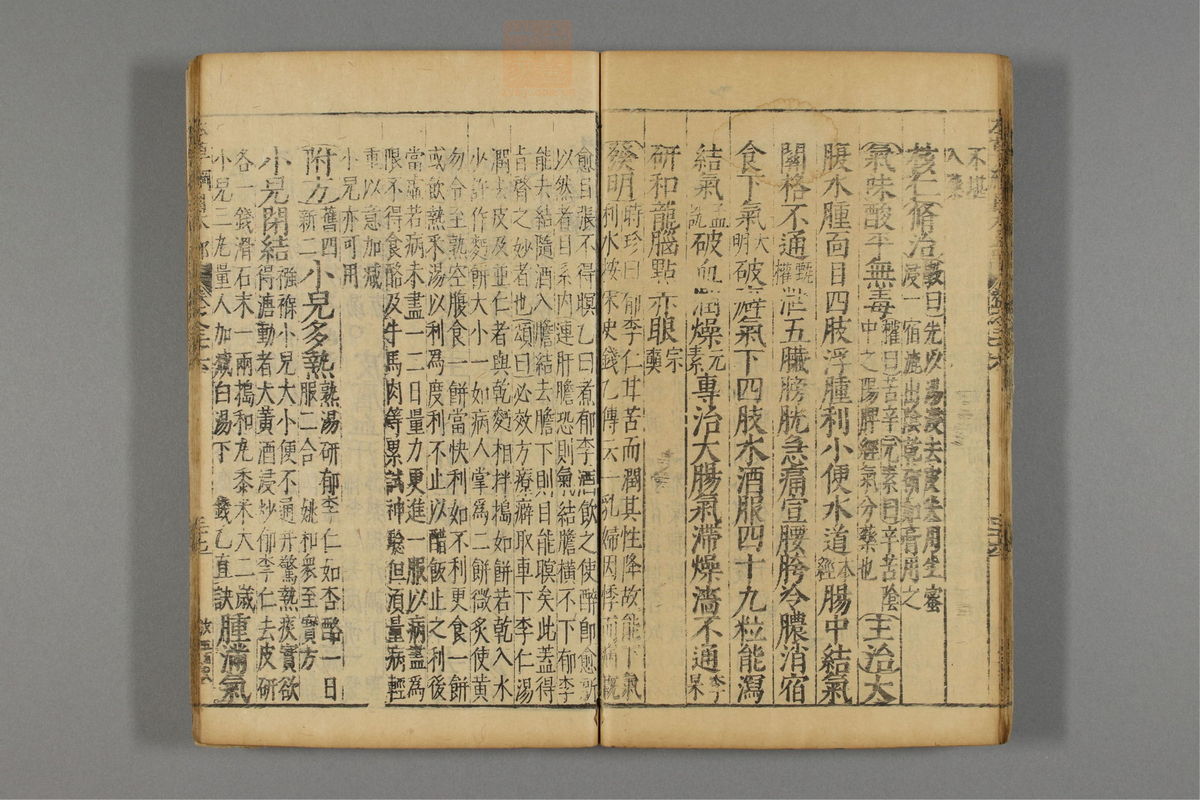 不堪
入藥
核仁修治斅曰先以湯浸去皮尖用生蜜
浸一宿漉出陰乾研如膏用之
氣味酸平無毒權曰苦辛元素曰辛苦陰
中之陽脾經氣分藥也主治大
腹水腫面目四肢浮腫利小便水道本經腸中結氣
關格不通甄權泄五臟膀胱急痛宣腰胯冷膿消宿
食下氣大明破癖氣下四肢水酒服四十九粒能瀉
結氣孟詵破血潤燥元素專治大腸氣滯燥濇不通李杲
研和龍腦點赤眼宗奭
發明時珍曰郁李仁甘苦而潤其性降故能下氣
利水按宋史錢乙傳云一乳婦因悸而病既
愈目張不得瞑乙曰煮郁李酒飲之使醉即愈所
以然者目系內連肝膽恐則氣結膽橫不下郁李
能去結隨酒入膽結去膽下則目能瞑矣此蓋得
肯綮之妙者也頌曰必效方療癖取車下李仁湯
潤去皮及並仁者與乾麪相拌搗如餅若乾入水
少許作麪餅大小一如病人掌爲二餅微炙使黃
勿令至熟空腹食一餅當快利如不利更食一餅
或飲熱米湯以利爲度利不止以醋飯止之利後
當虛若病未盡一二日量力更進一服以病盡爲
限不得食酪及牛馬肉等累試神驗但須量病輕
重以意加減
小兒亦可用
附方舊四新二小兒多熱熱湯研郁李仁如杏酪一日
服二合 姚和衆至寶方
小兒閉結襁褓小兒大小便不通并驚熱痰實欲
得溏動者大黃酒浸炒郁李仁去皮研
各一錢滑石末一兩搗和丸黍米大二歲
小兒三丸量人加減白湯下 錢乙直訣腫滿氣